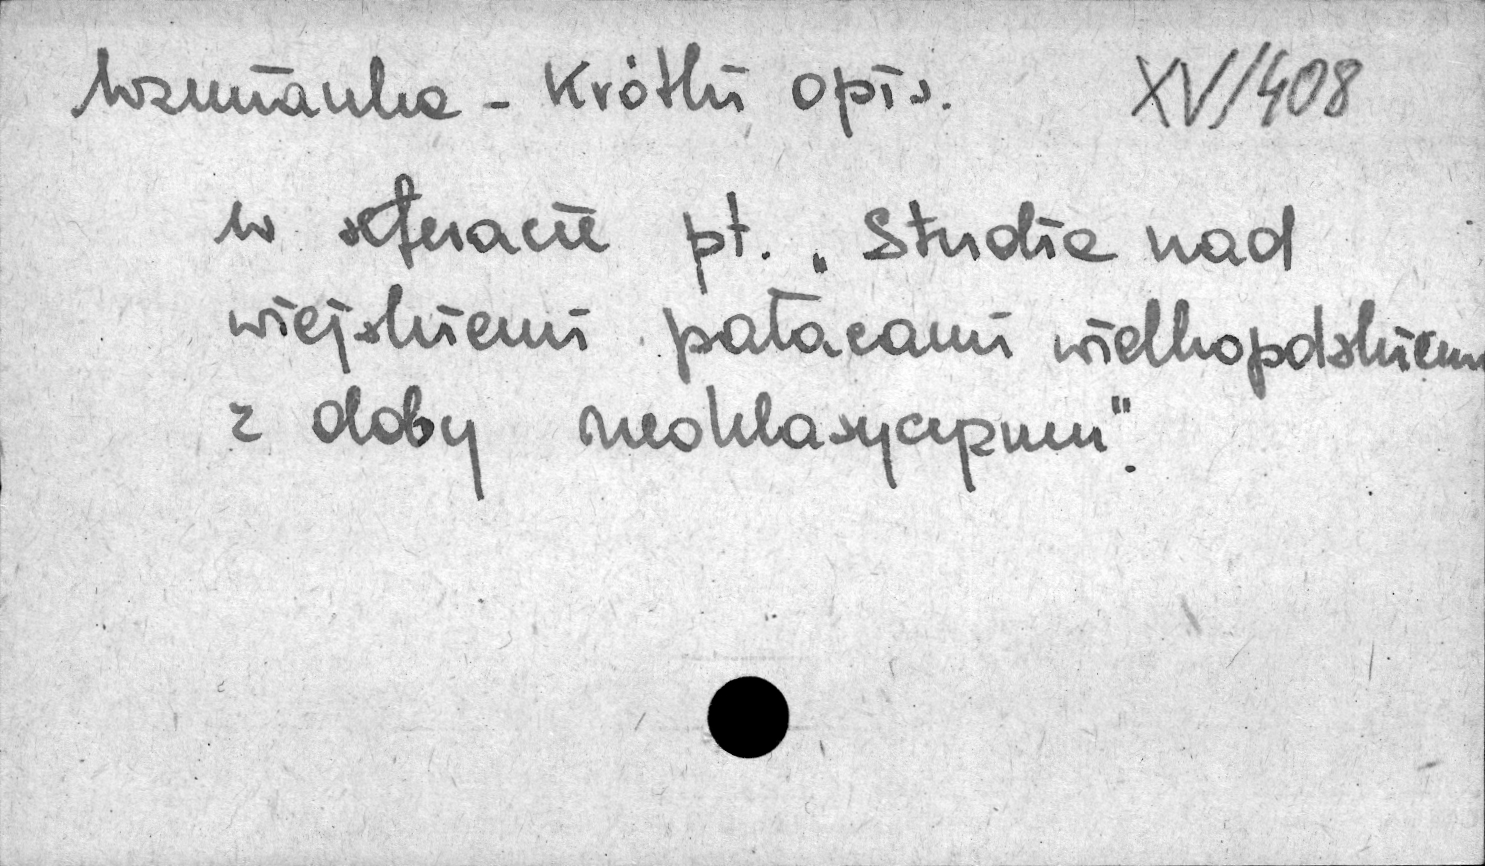 Wzmianka - Krótki opis. XV/408
w referacie pt. „Studia nad
wiejskiemi pałacami wielkopolskiemi
z doby neoklasycyzmu".